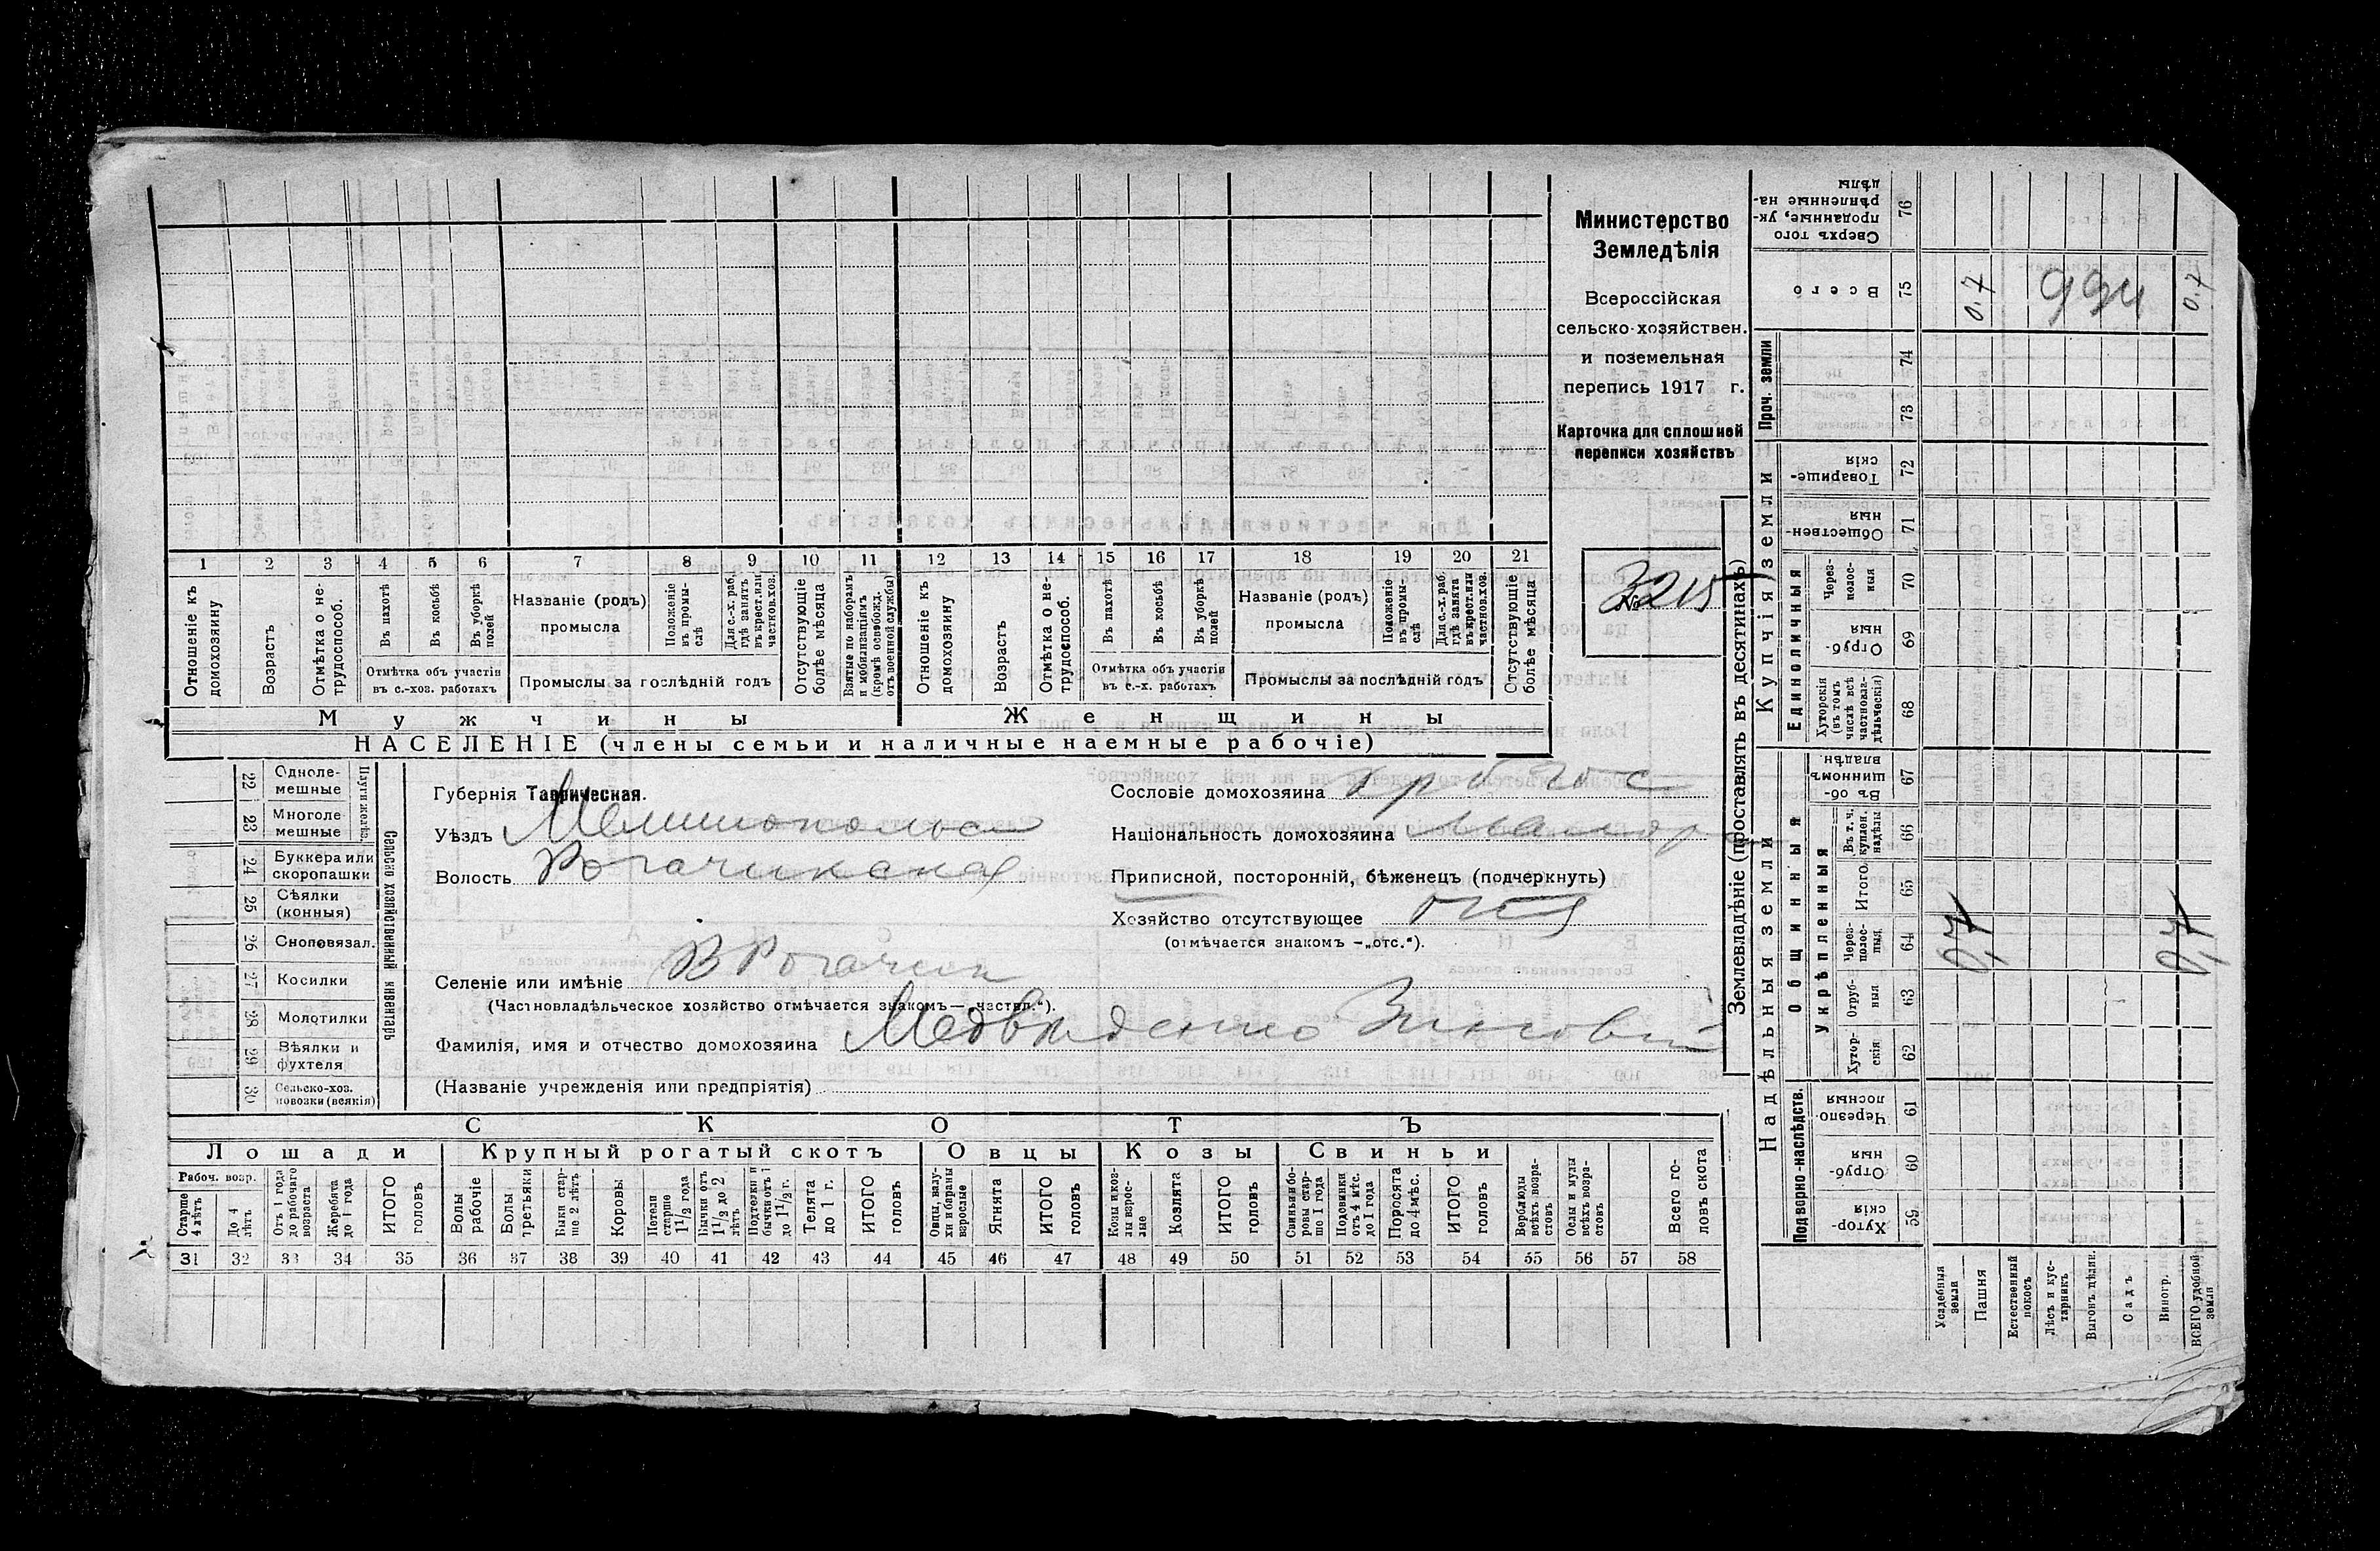 Министерство
Земледѣлія
Всероссійская
сельско-хозяйствен.
и поземельная
перепись 1917 г.
Карточка для сплошней
переписи хозяйствъ
№ 3215
1 2 3 4 5 6 7 8 9 10 11 12 13 14 15 16 17 18 19 20 21
Отношеніе къ домохозяину
Возрастъ
Отмѣтка о не-трудоспособ.
Въ пахотѣ
Въ косьбѣ
Въ уборкѣ полей
Отмѣтка объ участіи въ с.-хоз. работахъ
Названіе (родъ) промысла
Положеніе въ промы-слѣ
Для с.-х. раб. гдѣ занятъ въ крест. или частнов. хоз.
Промыслы за послѣдній годъ
Отсутствующіе болѣе мѣсяца
Взятые по наборамъ и мобилизаціямъ (кромѣ освобожд. отъ военной службы)
Отношеніе къ домохозяину
Возрастъ
Отмѣтка о не-трудоспособ.
Въ пахотѣ
Въ косьбѣ
Въ уборкѣ полей
Отмѣтка объ участіи въ с.-х. работахъ
Названіе (родъ) промысла
Положеніе въ промы-слѣ
Для с.-х. раб. гдѣ занята въ крест. или частнов. хоз.
Промыслы за послѣдній годъ
Отсутствующіе болѣе мѣсяца
Мужчины
Женщины
НАСЕЛЕНІЕ (члены семьи и наличные наемные рабочіе)
22 Одноле-мешные
23 Многоле-мешные
24 Буккера или скоропашки
25 Сѣялки (конныя)
26 Сноповязал.
27 Косилки
28 Молотилки
29 Вѣялки и фухтеля
30 Сельско-хоз. повозки (всякія)
Сельско хозяйственный инвентарь
Губернія Таврическая.
Уѣздъ Мелитопольск
Волость Рогачикская
Селеніе или имѣніе В Рогачик
(Частновладѣльческое хозяйство отмѣчается знакомъ—„частвл.“).
Фамилія, имя и отчество домохозяина Медведенко Зиновий
(Названіе учрежденія или предпріятія)
Сословіе домохозяина
Національность домохозяина малор
Приписной, посторонній, бѣженец (подчеркнуть)
Хозяйство отсутствующее
(отмѣчается знакомъ —„отс.“).
СКОТЪ
Лошади Крупный рогатый скотъ Овцы Козы Свиньи
Рабоч. возр.
Старше 4 лѣтъ
До 4 лѣтъ
Отъ 1 года до рабочаго возраста
Жеребята до 1 года
ИТОГО головъ
Волы рабочіе
Волы третьяки
Быки стар-ше 2 лѣтъ
Коровы
Нетели старше 1 1/2 года
Бычки отъ 1 1/2 до 2 лѣтъ
Подтелки и бычки отъ 1 до 1 1/2 г.
Телята до 1 г.
ИТОГО головъ
Овцы, валу-хи и бараны взрослые
Ягнята
ИТОГО головъ
Козы и коз-лы взрос-лые
Козлята
ИТОГО головъ
Свиньи и бо-ровы стар-ше 1 года
Подсвинки отъ 4 мѣс. до 1 года
Поросята до 4 мѣс.
ИТОГО головъ
Верблюды всѣхъ возра-стовъ
Ослы и мулы всѣхъ возра-стовъ
Всего го-ловъ скота
31 32 33 34 35 36 37 38 39 40 41 42 43 44 45 46 47 48 49 50 51 52 53 54 55 56 57 58
Землевладѣніе (проставлять въ десятинахъ)
Надѣльныя земли
Купчія земли
Проч. земли
Подворно-наслѣдств.
Общинныя
Укрѣпленныя
Единоличныя
Хутор-скія 59
Отруб-ныя 60
Черезпо-лосныя 61
Хутор-скія 62
Отруб-ныя 63
Через-полос-ныя 64
Итого 65
Въ т. ч. куплен. надѣлы 66
Въ об-щинномъ владѣн. 67
Хуторскія (въ томъ числѣ всѣ частновла-дѣльческія) 68
Отруб-ныя 69
Через-полос-ныя 70
Обществен-ныя 71
Товарище-скія 72
73
74
Всего 75
Сверхъ того проданные, ук-рѣпленные на-дѣлы 76
Усадебныя земли
Пашня
Естественный покосъ
Лѣсъ и кус-тарникъ
Выгонъ дѣлим.
Садъ
Виногр.
ВСЕГО удобной земли
0,7 0,7
0.7 994 0.7